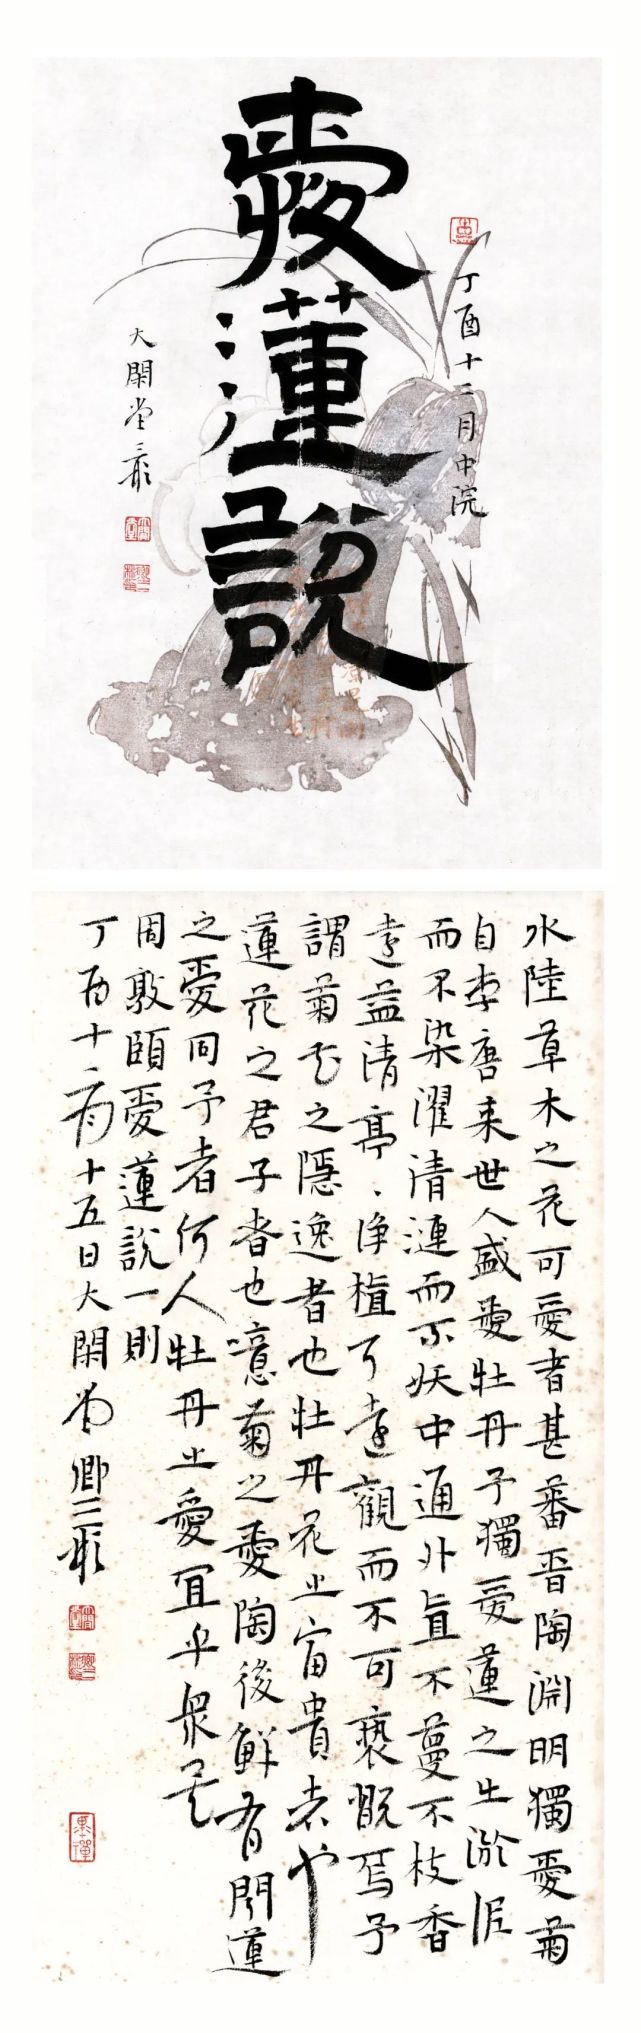 丁酉十二月中浣
愛蓮說
大閑堂三
水陸草木之花可愛者甚蕃晉陶淵明獨愛菊
自李唐来世人盛愛牡丹予獨愛蓮之出淤泥
而不染濯清漣而不妖中通外直不蔓不枝香
遠益清亭、净植可遠觀而不可褻翫焉予
謂菊花之隱逸者也牡丹花之富貴者也
蓮花之君子者也噫菊之愛陶後鮮有聞蓮
之愛同予者何人牡丹之愛宜乎衆矣
周敦頤愛蓮說一則
丁酉十二月十五日大閑堂卿三